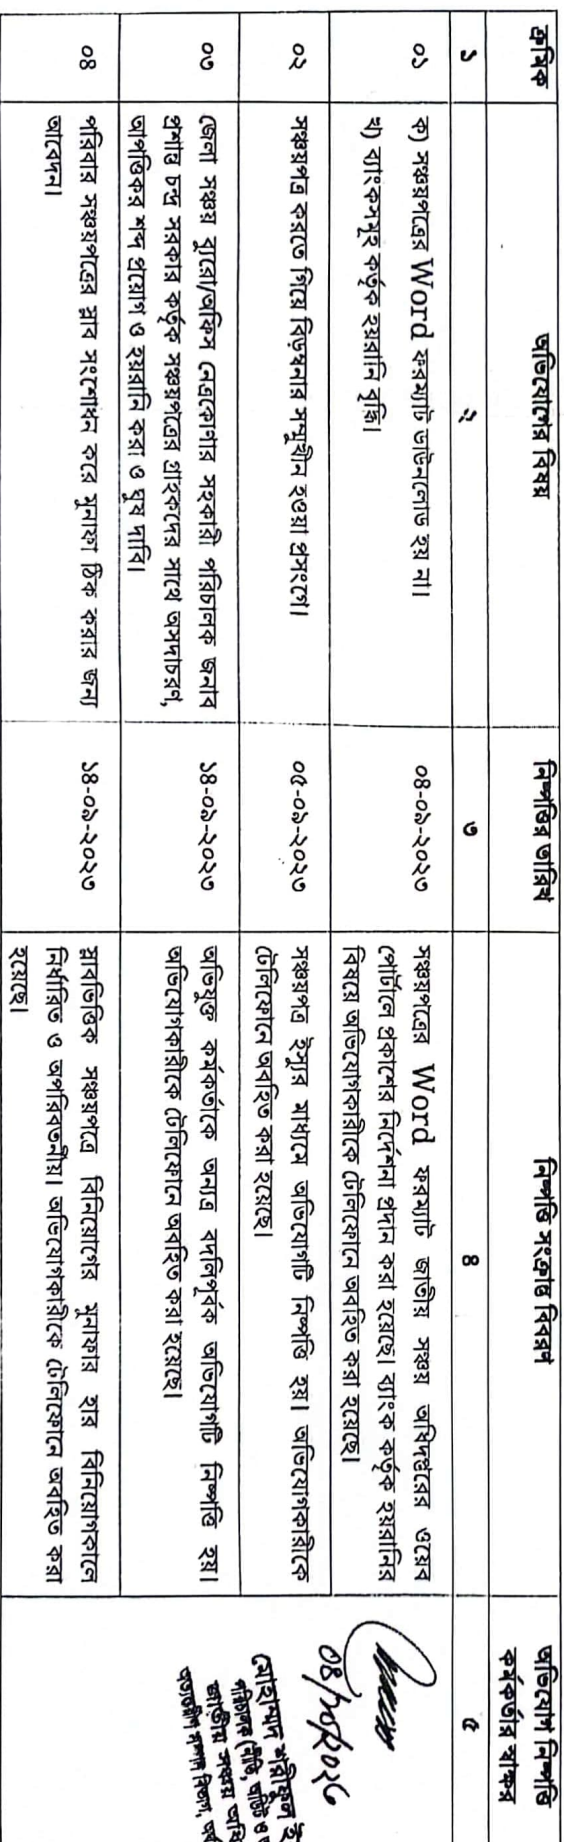 ক্রমিক
অভিযোগের বিষয়
নিষ্পত্তির তারিখ
নিষ্পত্তি সংক্রান্ত বিবরণ
অভিযোগ নিষ্পত্তি
কর্মকর্তার স্বাক্ষর
১
২
৩
৪
৫
০১
ক) সঞ্চয়পত্রের Word ফরম্যাট ডাউনলোড হয় না।
খ) ব্যাংকসমূহ কর্তৃক হয়রানি বৃদ্ধি।
০৪-০৯-২০২৩
সঞ্চয়পত্রের Word ফরম্যাট জাতীয় সঞ্চয় অধিদপ্তরের ওয়েব
পোর্টালে প্রকাশের নির্দেশনা প্রদান করা হয়েছে। ব্যাংক কর্তৃক হয়রানির
বিষয়ে অভিযোগকারীকে টেলিফোনে অবহিত করা হয়েছে।
০২
সঞ্চয়পত্র করতে গিয়ে বিড়ম্বনার সম্মুখীন হওয়া প্রসংগে।
০৫-০৯-২০২৩
সঞ্চয়পত্র ইস্যুর মাধ্যমে অভিযোগটি নিষ্পত্তি হয়। অভিযোগকারীকে
টেলিফোনে অবহিত করা হয়েছে।
০৩
জেলা সঞ্চয় ব্যুরো/অফিস নেত্রকোণার সহকারী পরিচালক জনাব
প্রশান্ত চন্দ্র সরকার কর্তৃক সঞ্চয়পত্রের গ্রাহকদের সাথে অসদাচরণ,
আপত্তিকর শব্দ প্রয়োগ ও হয়রানি করা ও ঘুষ দাবি।
১৪-০৯-২০২৩
অভিযুক্ত কর্মকর্তাকে অন্যত্র বদলিপূর্বক অভিযোগটি নিষ্পত্তি হয়।
অভিযোগকারীকে টেলিফোনে অবহিত করা হয়েছে।
০৪
পরিবার সঞ্চয়পত্রের স্লাব সংশোধন করে মুনাফা ঠিক করার জন্য
আবেদন।
১৪-০৯-২০২৩
স্লাবভিত্তিক সঞ্চয়পত্রে বিনিয়োগের মুনাফার হার বিনিয়োগকালে
নির্ধারিত ও অপরিবর্তনীয়। অভিযোগকারীকে টেলিফোনে অবহিত করা
হয়েছে।
০৪/১০/২০২৩
মোহাম্মদ শরীফুল
পরিচালক (নীতি, অডিট ও
জাতীয় সঞ্চয় অধি
অভ্যন্তরীণ সম্পদ বিভাগ,